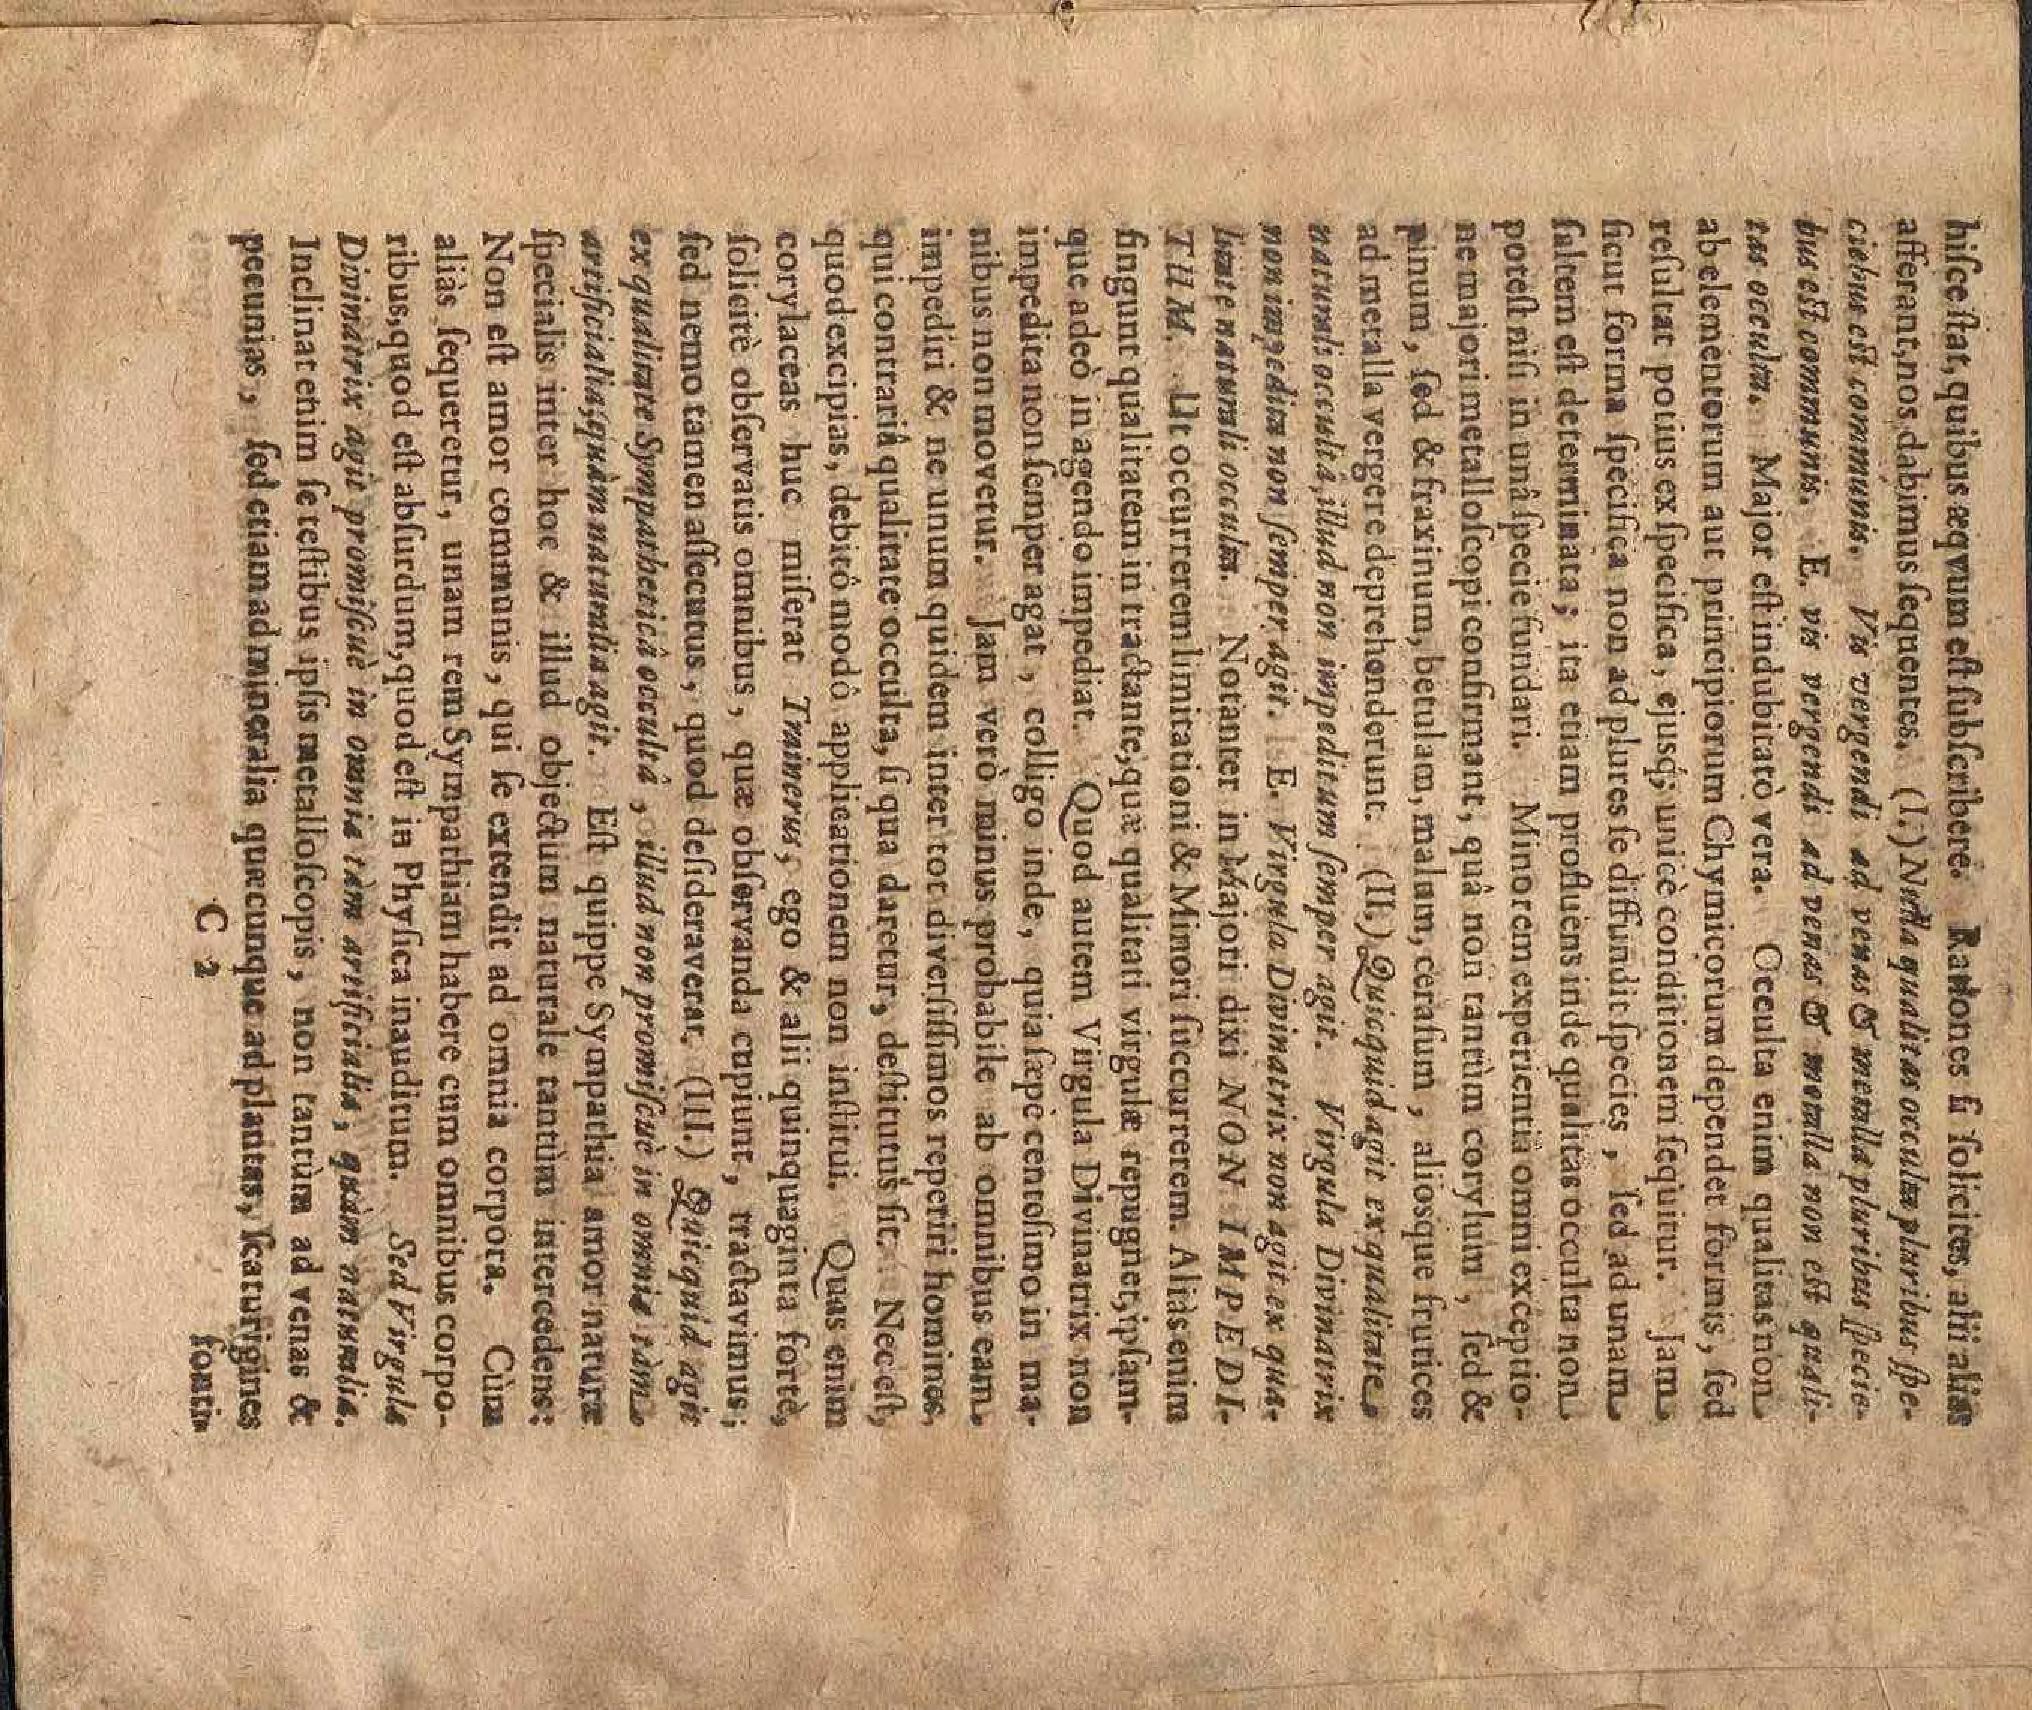 hiſce ſtat, quibus æqvum eſt ſubſcribere. Rationes ſi ſolicites, alii alias
afferant, nos dabimus ſequentes. (I.) Nulla qualitas occulta pluribus ſpe-
ciebus est communis. Vis vergendi ad venas & metalla pluribus ſpecie-
bus est communis. E. vis vergendi ad venas & metalla non est quali-
tas occulta. Major eſt indubitatò vera. Occulta enim qualitas non
ab elementorum aut principiorum Chymicorum dependet formis, ſed
reſultat potius ex ſpecifica, ejusq; unicè conditionem ſequitur. Jam
ſicut forma ſpecifica non ad plures ſe diffundit ſpecies, ſed ad unam
ſaltem eſt determinata; ita etiam profluens inde qualitas occulta non
poteſt niſi in unâ ſpecie fundari. Minorem experientia omni exceptio-
ne majori metalloſcopi confirmant, quâ non tantùm corylum, ſed &
pinum, ſed & fraxinum, betulam, malum, ceraſum, aliosque frutices
ad metalla vergere deprehenderunt. (II.) Quicquid agit ex qualitate
naturali occultâ, illud non impeditum ſemper agit. Virgula Divinatrix
non impedita non ſemper agit. E. Virgula Divinatrix non agit ex qua-
litate naturali occulta. Notanter in Majori dixi NON IMPEDI-
TUM. Ut occurrerem limitationi & Minori ſuccurrerem. Aliàs enim
fingunt qualitatem in tractante, quæ qualitati virgulæ repugnet, ipſam-
que adeò in agendo impediat. Quod autem Virgula Divinatrix non
impedita non ſemper agat, colligo inde, quia ſæpè centoſimo in ma-
nibus non movetur. Jam verò minus probabile ab omnibus eam
impediri & ne unum quidem inter tot diverſiſſimos reperiri homines,
qui contrariâ qualitate occulta, ſi qua daretur, deſtitutus ſit. Nec eſt,
quod excipias, debitô modô applicationem non inſtitui. Quas enim
corylaceas huc miſerat Trainerus, ego & alii quinquaginta fortè,
ſolicitè obſervatis omnibus, quæ obſervanda cupiunt, tractavimus;
ſed nemo tamen aſſecutus, quod deſideraverat. (III.) Quicquid agit
ex qualitate Sympatheticâ occultâ, illud non promiſcuè in omnia tàm
artificialia, quàm naturalia agit. Eſt quippe Sympathia amor naturæ
ſpecialis inter hoc & illud objectum naturale tantùm intercedens:
Non eſt amor communis, qui ſe extendit ad omnia corpora. Cùm
aliàs ſequeretur, unam rem Sympathiam habere cum omnibus corpo-
ribus, quod eſt abſurdum, quod eſt in Phyſica inauditum. Sed Virgula
Divinatrix agit promiſcuè in omnia tàm artificialia, quàm naturalia.
Inclinat enim ſe teſtibus ipſis metalloſcopis, non tantùm ad venas &
pecunias, ſed etiam ad mineralia quæcunque ad plantas, ſcaturigines
C 2